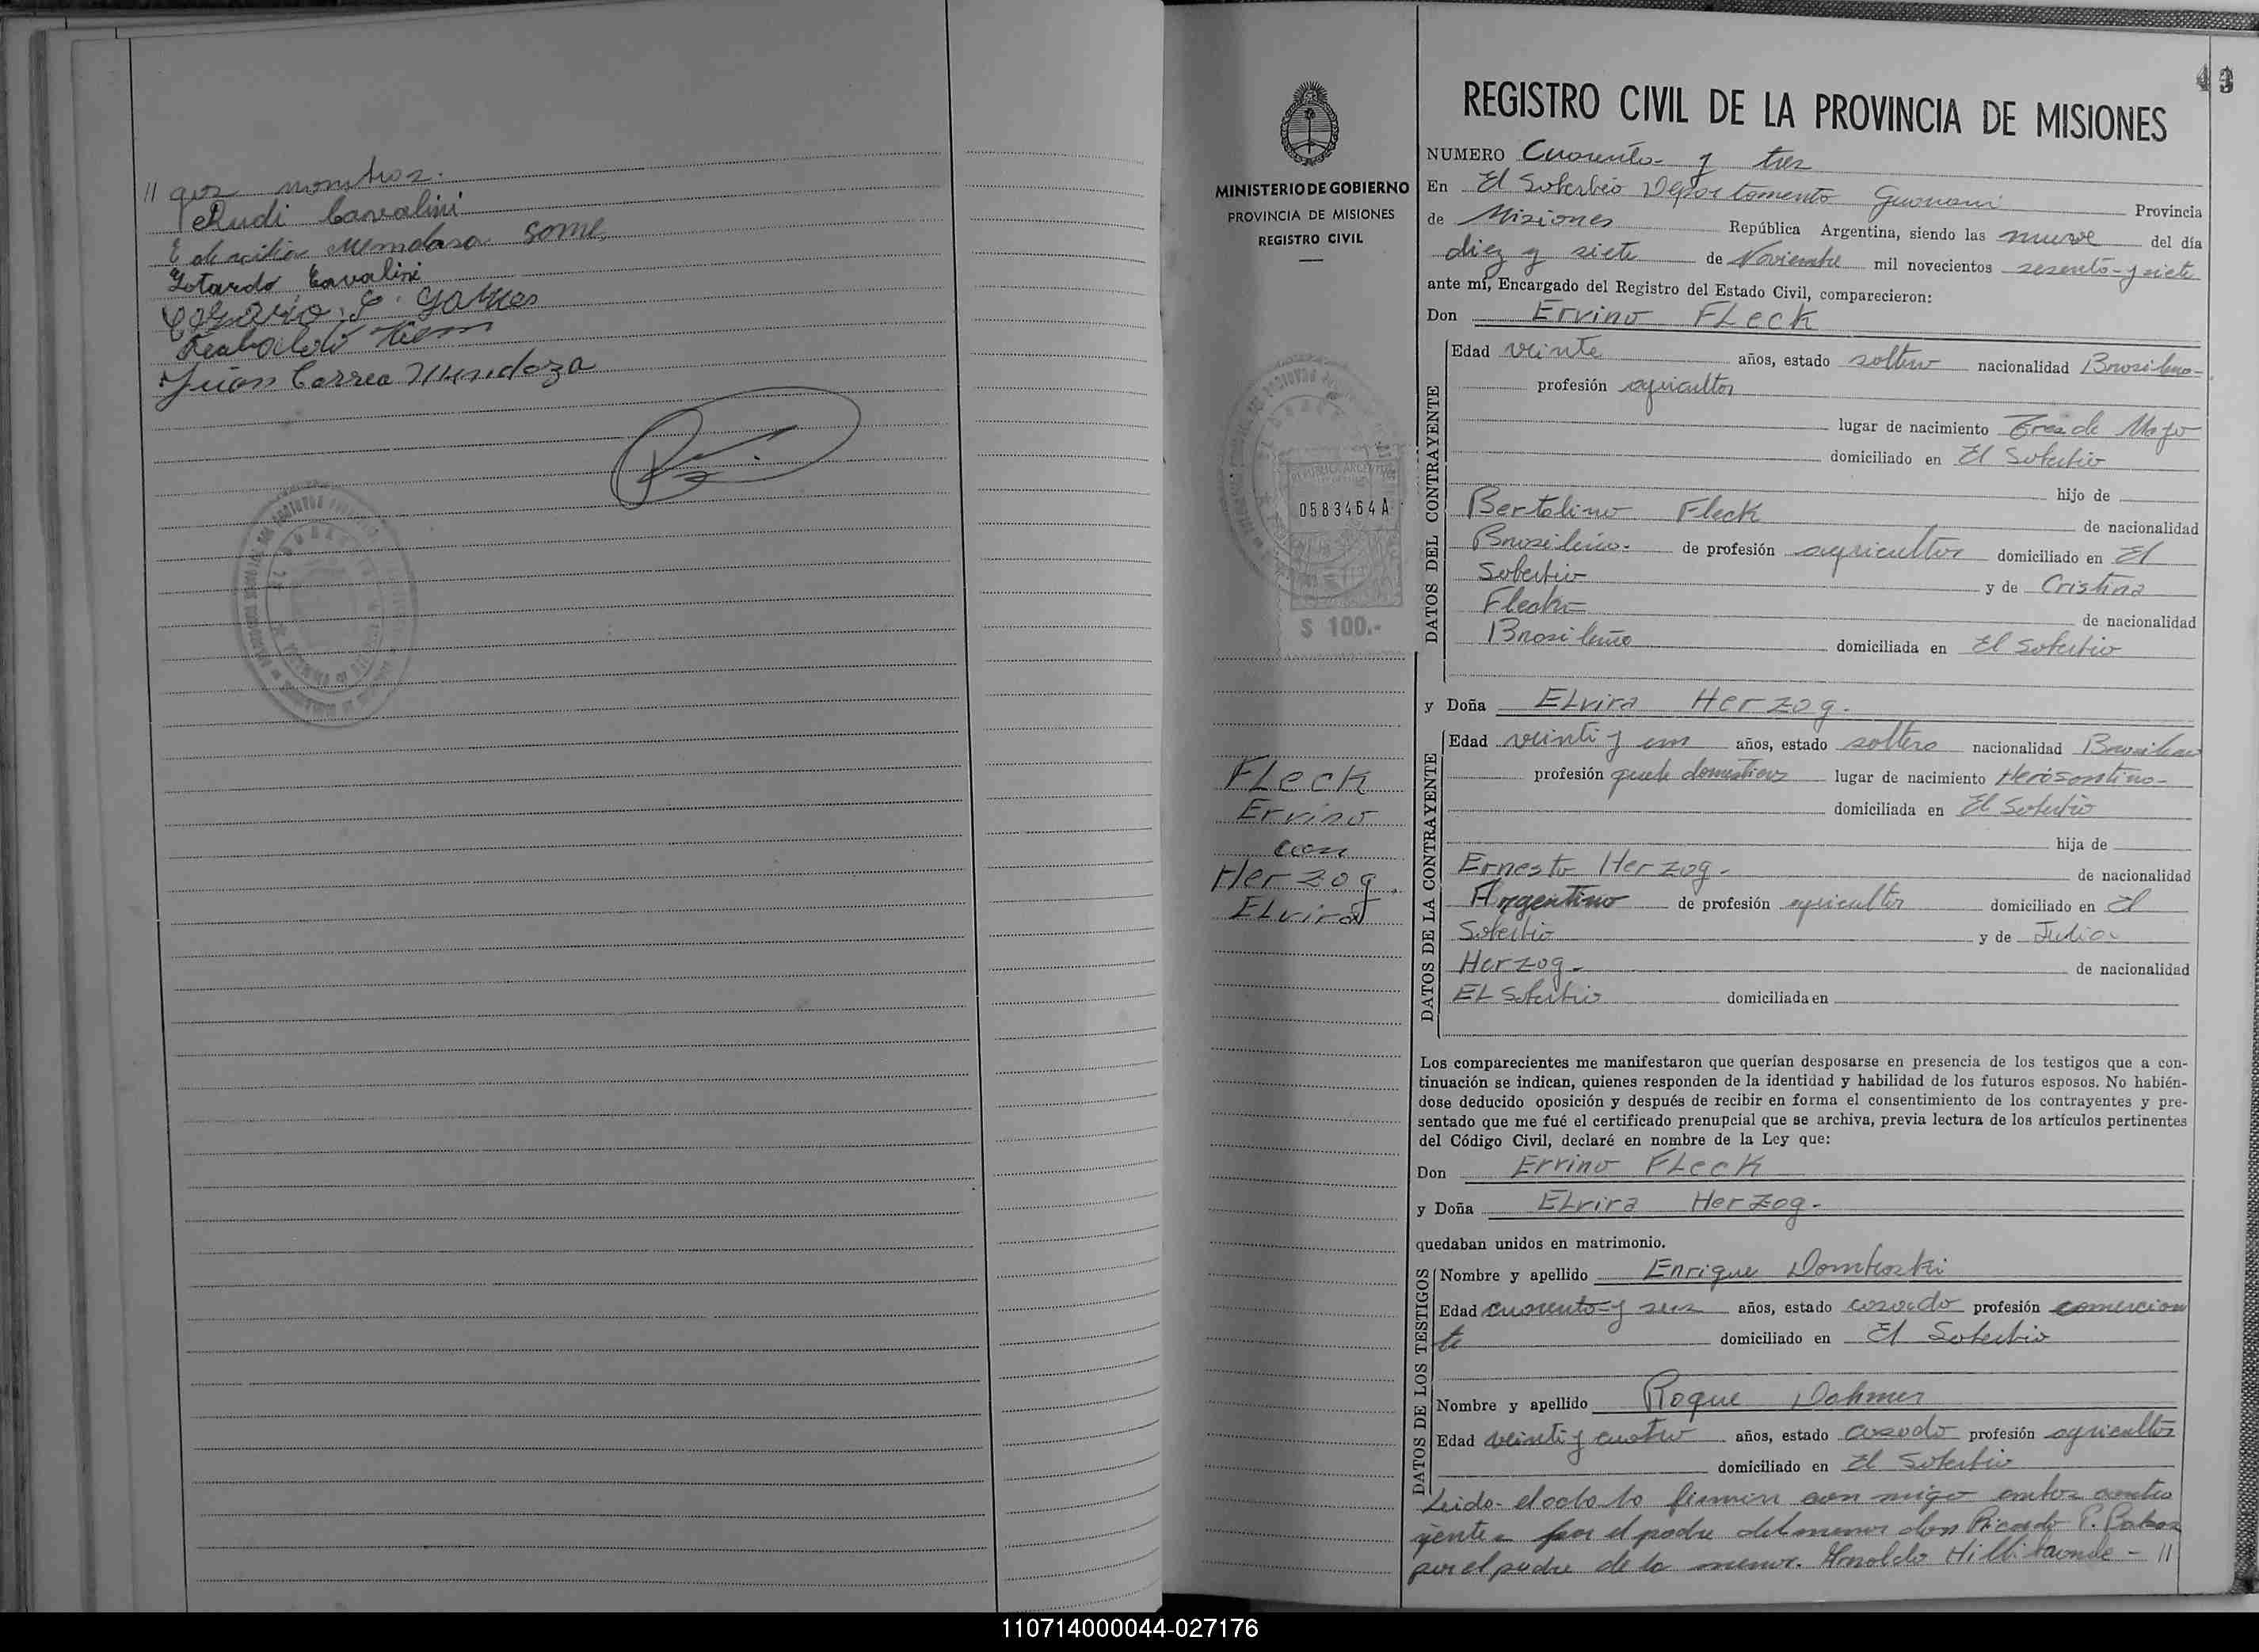 // qos nombros.
Rudi Cavalini
Gotardo Cavalini
Juan Correa Mendoza
43
MINISTERIO DE GOBIERNO
PROVINCIA DE MISIONES
REGISTRO CIVIL
0583464A
$ 100.-
FLeck
Ervino
con
Herzog
ELvira
REGISTRO CIVIL DE LA PROVINCIA DE MISIONES
NUMERO Cuarenta y tres
En El Soberbio Departamento Guarani Provincia
de Misiones República Argentina, siendo las nueve del día
diez y siete de Noviembre mil novecientos sesenta y siete
ante mí, Encargado del Registro del Estado Civil, comparecieron:
Don Ervino FLeck
DATOS DEL CONTRAYENTE
Edad veinte años, estado soltero nacionalidad Brasileno-
profesión agricultor
lugar de nacimiento Tres de Mayo
domiciliado en El Soberbio
hijo de
Bertolino Fleck
de nacionalidad
Brasileño. de profesión agricultor domiciliado en El
Soberbio y de Cristina
de nacionalidad
Brasileña domiciliada en El Soberbio
y Doña ELvira Herzog.
DATOS DE LA CONTRAYENTE
Edad veinti y un años, estado soltera nacionalidad Brasilena
profesión queh domesticos lugar de nacimiento
domiciliada en El Soberbio
hija de
Ernesto Herzog-
de nacionalidad
Argentino de profesión agricultor domiciliado en El
Soberbio y de Julia
Herzog- de nacionalidad
EL Soberbio domiciliada en
Los comparecientes me manifestaron que querían desposarse en presencia de los testigos que a con-
tinuación se indican, quienes responden de la identidad y habilidad de los futuros esposos. No habién-
dose deducido oposición y después de recibir en forma el consentimiento de los contrayentes y pre-
sentado que me fué el certificado prenupcial que se archiva, previa lectura de los artículos pertinentes
del Código Civil, declaré en nombre de la Ley que:
Don Ervino FLeck
y Doña ELvira Herzog-
quedaban unidos en matrimonio.
DATOS DE LOS TESTIGOS
Nombre y apellido Enrique Domboski
Edad cuarenta y seis años, estado casado profesión comercian
te domiciliado en El Soberbio
Nombre y apellido Roque Dahmer
Edad veinti y cuatro años, estado casado profesión agricultor
domiciliado en El Soberbio
Leido el acta la firman con migo ambos contra
yente por el padre del menor don Ricardo P.
por el padre de la menor. Arnoldo - //
110714000044-027176